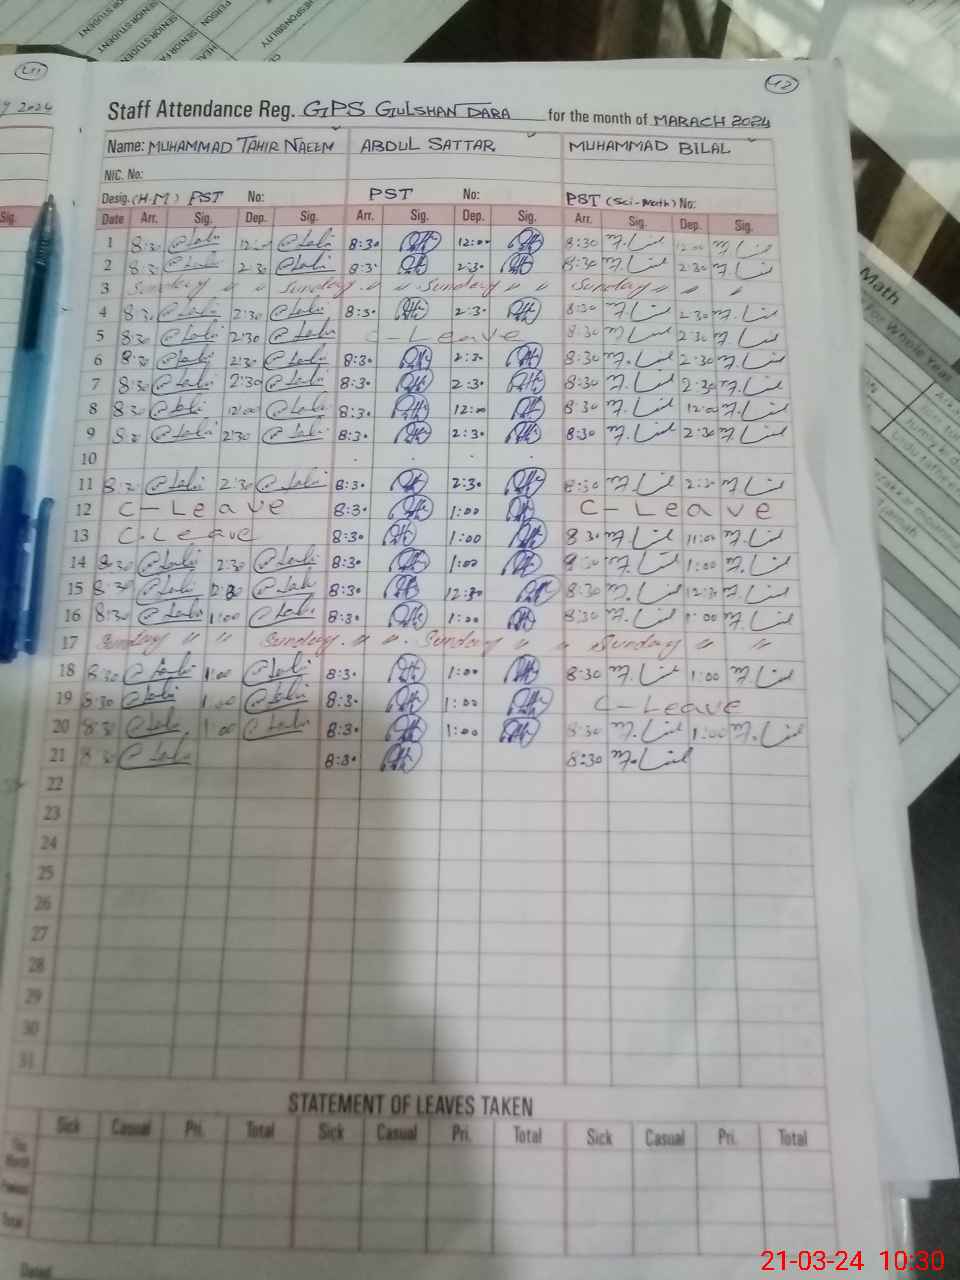 RESPONSIBILITY
PERSON
SENIOR STUDENT
42
411
2024
Staff Attendance Reg. GPS GULSHAN DARA for the month of MARACH 2024
Name: MUHAMMAD TAHIR NAEEM ABDUL SATTAR MUHAMMAD BILAL
NIC. No:
Desig. (H.M) PST No: PST No: PST (Sci-Math) No:
Sig. Date Arr. Sig. Dep. Sig. Arr. Sig. Dep. Sig. Arr. Sig. Dep. Sig.
1 8:30 12:00 8:30 12:00 8:30 12:00
2 8:30 2:30 8:3 2:30 8:30 2:30
3 Sunday " " Sunday " " Sunday " " Sunday " " "
4 8:30 2:30 8:30 2:30 8:30 2:30
5 8:30 2:30 C-Leave 8:30 2:30
6 8:30 2:30 8:30 2:30 8:30 2:30
7 8:30 2:30 8:30 2:30 8:30 2:30
8 8:30 12:00 8:30 12:00 8:30 12:00
9 8:3 2:30 8:30 2:30 8:30 2:30
10
11 8:30 2:30 8:30 2:30 8:30 2:30
12 C-Leave 8:30 1:00 C-Leave
13 C.Leave 8:30 1:00 8:30 11:00
14 8:30 2:30 8:30 1:00 8:30 1:00
15 8:30 12:30 8:30 12:30 8:30 12:30
16 8:30 1:00 8:30 1:00 8:30 1:00
17 Sunday " " Sunday. " " Sunday " " Sunday " "
18 8:30 1:00 8:30 1:00 8:30 1:00
19 8:30 1:00 8:30 1:00 C-Leave
20 8:30 1:00 8:30 1:00 8:30 1:00
21 8:30 8:30 8:30
22
23
24
25
26
27
28
29
30
31
STATEMENT OF LEAVES TAKEN
Sick Casual Pri. Total Sick Casual Pri. Total Sick Casual Pri. Total
This Month
Previous
Total
Dated
Math
For Whole Year
21-03-24 10:30